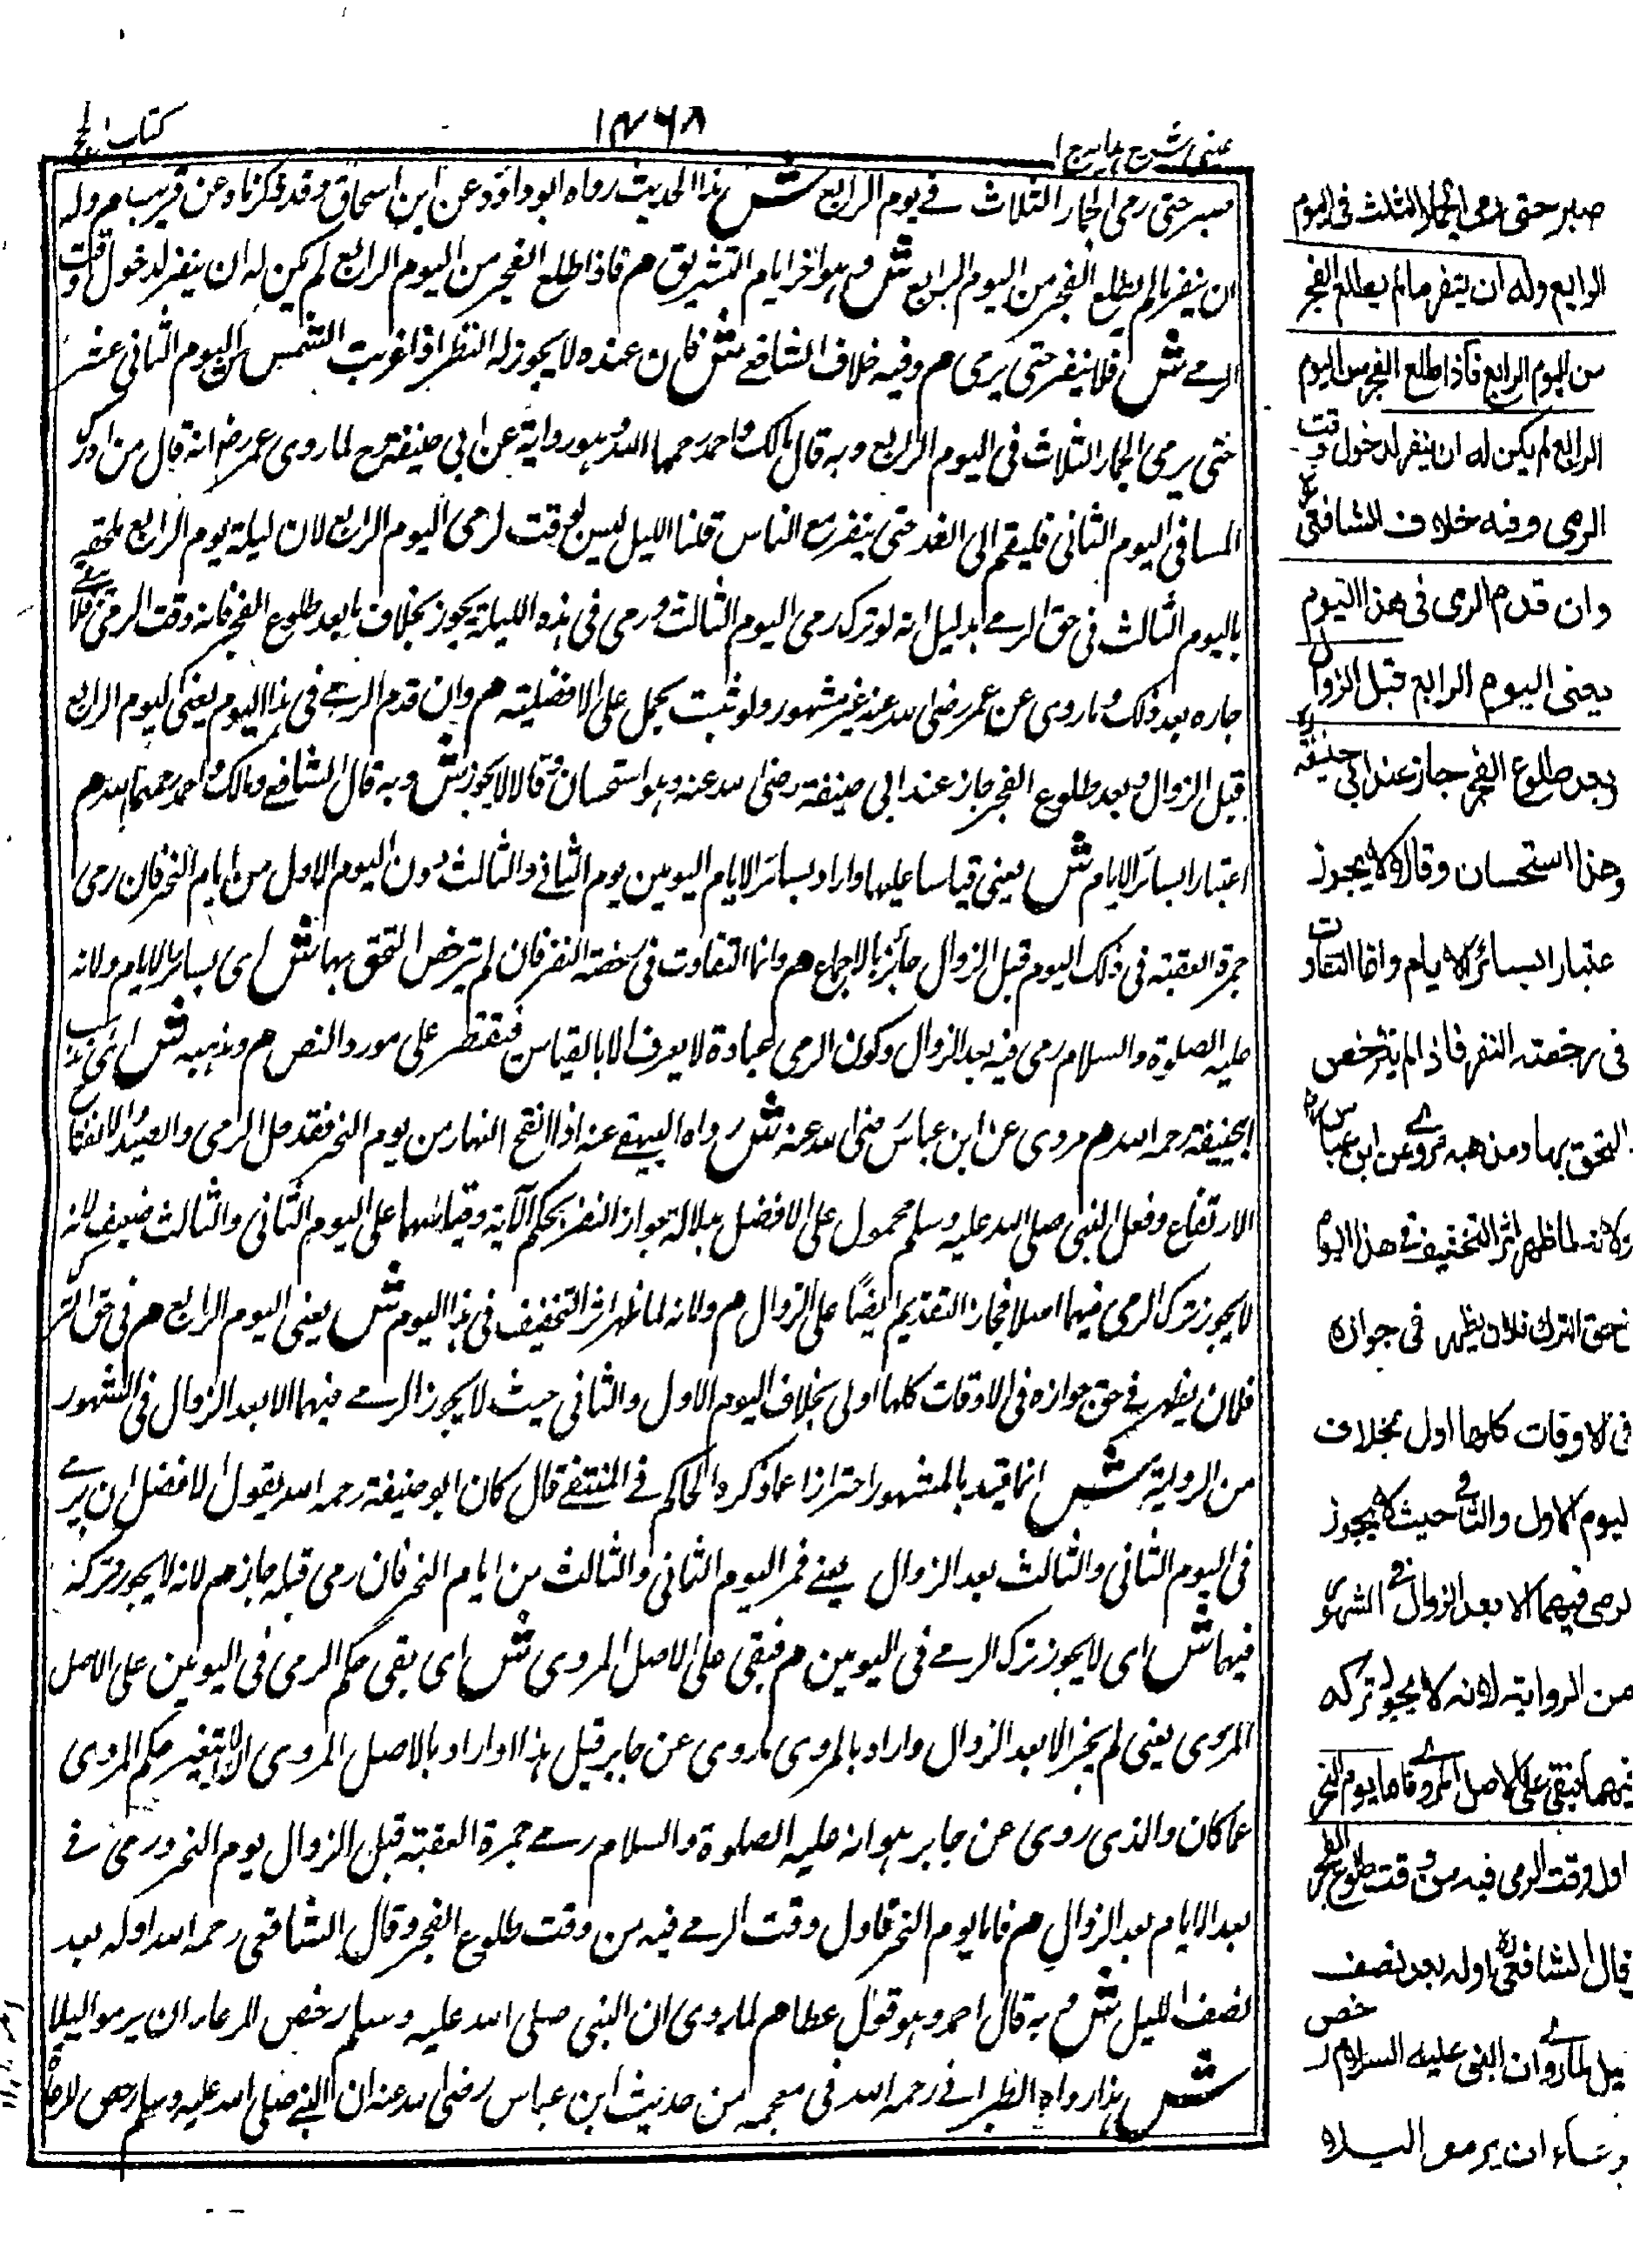 كتاب الحج
١٤٦٨
عینی شرح هدایه ج ١
صبر حتى رمى الجمار الثلاث في يوم الرابع ش هذا الحديث رواه ابو داؤد عن ابن اسحاق وقد ذكرناه عن قريب م وله
ان ينفر مالم يطلع الفجر من اليوم الرابع ش وهو آخر ايام التشريق م فاذا طلع الفجر من اليوم الرابع لم يكن له ان ينفر لدخول وقت
الرمے ش فلا ينفر حتى يرمى م وفيه خلاف الشافعے ش فان عنده لا يجوز له النفر اذا غربت الشمس من اليوم الثانى عشر
حتى يرمى الجمار الثلاث فى اليوم الرابع وبه قال مالك واحمد رحمهما الله وهو رواية عن ابى حنيفة رح لما روى عمر رض انه قال من ادركه
المسا فى اليوم الثانى فليقم الى الغد حتى ينفر مع الناس قلنا الليل ليس بوقت لرمى اليوم الرابع لان ليلة يوم الرابع ملحقة
باليوم الثالث فى حق الرمے بدليل انه لو ترك رمى اليوم الثالث ورمى فى هذه الليلة يجوز بخلاف ما بعد طلوع الفجر فانه وقت الرمى فلا
جاره بعد ذلك وما روى عن عمر رضى الله عنه غير مشهور ولو ثبت يحمل على الافضلية م وان قدم الرمے فى هذا اليوم يعنى اليوم الرابع
قبل الزوال وبعد طلوع الفجر جاز عند ابى حنيفة رضى الله عنه وهو استحسان وقالا لا يجوز ش وبه قال الشافعے ومالك واحمد رحمهم الله م
اعتبارا بسائر الايام ش يعنى قياسا عليها واراد بسائر الايام اليومين يوم الثانے والثالث دون اليوم الاول من ايام النحر فان رمى
جمرة العقبة فى ذلك اليوم قبل الزوال جائز بالاجماع م وانما التفاوت فى رخصة النفر فان لم يترخص التحق بها ش اى بسائر الايام ولانه
عليه الصلوة والسلام رمى فيه بعد الزوال وكون الرمى عبادة لا يعرف الا بالقياس فيقتصر على مورد النص م ومذهبه ش اى مذهب
ابحنيفة رحمه الله م مروى عن ابن عباس رضى الله عنه ش رواه البيهقے عنه اذا انتفخ النهار من يوم النحر فقد حل الرمى والصيد والانتفاخ
الارتفاع وفعل النبى صلى الله عليه وسلم محمول على الافضل بدلالة جواز النفر بحكم الآية وقياسهما على اليوم الثانى والثالث ضعيف لانه
لا يجوز ترك الرمى فيهما اصلا فجاز التقديم ايضا على الزوال م ولانه لما ظهر اثر التخفيف فى هذا اليوم ش يعنى اليوم الرابع م فى حق الترك
فلان يظهر فے حق جوازه فى الاوقات كلها اولى بخلاف اليوم الاول والثانى حيث لا يجوز الرمے فيهما الا بعد الزوال فى المشهور
من الرواية ش انما قيد بالمشهور احترازا عما ذكره الحاكم فے المنتقے قال كان ابو حنيفة رحمه الله يقول الافضل ان يرمے
فى اليوم الثانى والثالث بعد الزوال يعنے فى اليوم الثانى والثالث من ايام النحر فان رمى قبله جاز م لانه لا يجوز تركه
فيهما ش اى لا يجوز ترك الرمے فى اليومين م فبقى على الاصل المروى ش اى بقى حكم الرمى فى اليومين على الاصل
المروى يعنى لم يجز الا بعد الزوال واراد بالمروى ما روى عن جابر قيل هذا اواراد بالاصل المروى لا يتغير حكم المروى
عما كان والذى روى عن جابر هو انه عليه الصلوة والسلام رمے جمرة العقبة قبل الزوال يوم النحر ورمى فے
بعد الايام بعد الزوال م فاما يوم النحر فاول وقت الرمے فيه من وقت طلوع الفجر وقال الشافعى رحمه الله اوله بعد
نصف الليل ش وبه قال احمد وهو قول عطا م لما روى ان النبى صلى الله عليه وسلم رخص للرعاء ان يرموا ليلا
ش هذا رواه الطبرانے رحمه الله فى معجمه من حديث ابن عباس رضى الله عنه ان النبے صلى الله عليه وسلم رخص لرعاء
صبر حتى رمى الجمار الثلث فى اليوم
الرابع وله ان ينفر مالم يطلع الفجر
من اليوم الرابع فاذا طلع الفجر من اليوم
الرابع لم يكن له ان ينفر لدخول وقت
الرمى وفيه خلاف الشافعى
وان قدم الرمى فى هذا اليوم
يعنى اليوم الرابع قبل الزوال
وبعد طلوع الفجر جاز عند ابى حنيفة
وهذا استحسان وقالا لا يجوز
عتبارا بسائر الايام وانما التفاوت
فى رخصة النفر فاذا لم يترخص
التحق بها ومذهبه مروے عن ابن عباس
ولانه لما ظهر اثر التخفيف فے هذا اليوم
فى حق الترك فلان يظهر فى جوازه
فى الاوقات كلها اولى بخلاف
ليوم الاول والثانے حيث لا يجوز
لرمى فيهما الا بعد الزوال فے المشهور
من الرواية لانه لا يجوز تركه
فيهما فبقى على الاصل المروے فاما يوم النحر
اول وقت الرمى فيه من وقت طلوع الفجر
قال الشافعى اوله بعد نصف
ليل لما روے ان النبى عليه السلام رخص
رعاء ان يرموا ليلا